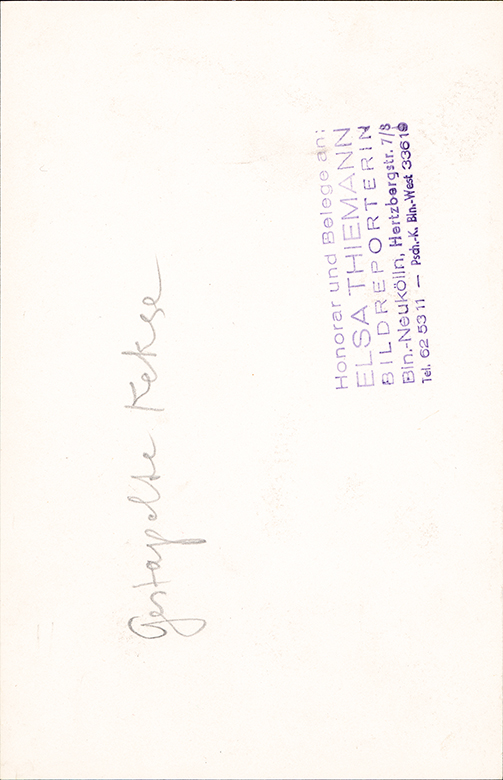 Gestapelte Kekse
Honorar und Belege an:
ELSA THIEMANN
BILDREPORTERIN
Bln.-Neukölln, Hertzbergstr. 7/8
Tel. 62 53 11 — Psch.-K. Bln.-West 33619